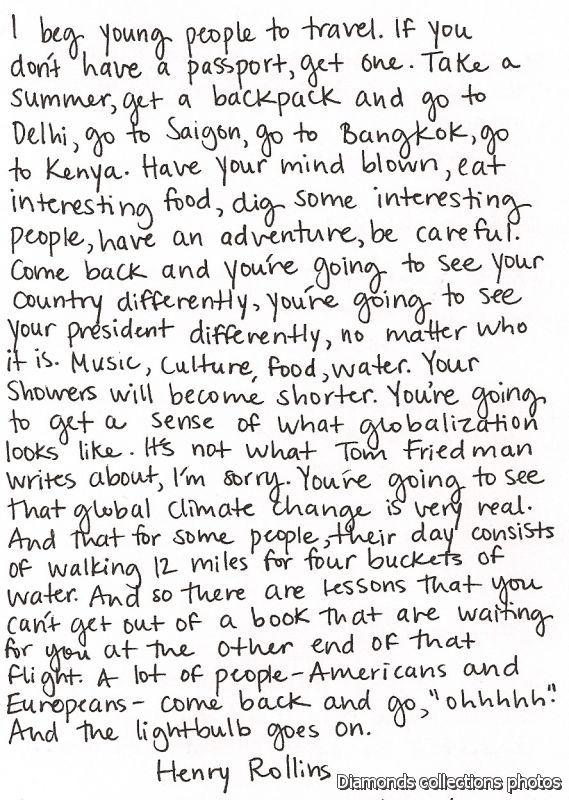 I beg young people to travel. If you
don't have a passport, get one. Take a
summer, get a backpack and go to
Delhi, go to Saigon, go to Bangkok, go
to Kenya. Have your mind blown, eat
interesting food, dig some interesting
people, have an adventure, be careful.
Come back and you're going to see your
country differently, you're going to see
your president differently, no matter who
it is. Music, culture, food, water. Your
showers will become shorter. You're going
to get a sense of what globalization
looks like. It's not what Tom Friedman
writes about, I'm sorry. You're going to see
that global climate change is very real.
And that for some people, their day consists
of walking 12 miles for four buckets of
water. And so there are lessons that you
can't get out of a book that are waiting
for you at the other end of that
flight. A lot of people-Americans and
Europeans- come back and go, "ohhhhh."
And the lightbulb goes on.
Henry Rollins
Diamonds collections photos